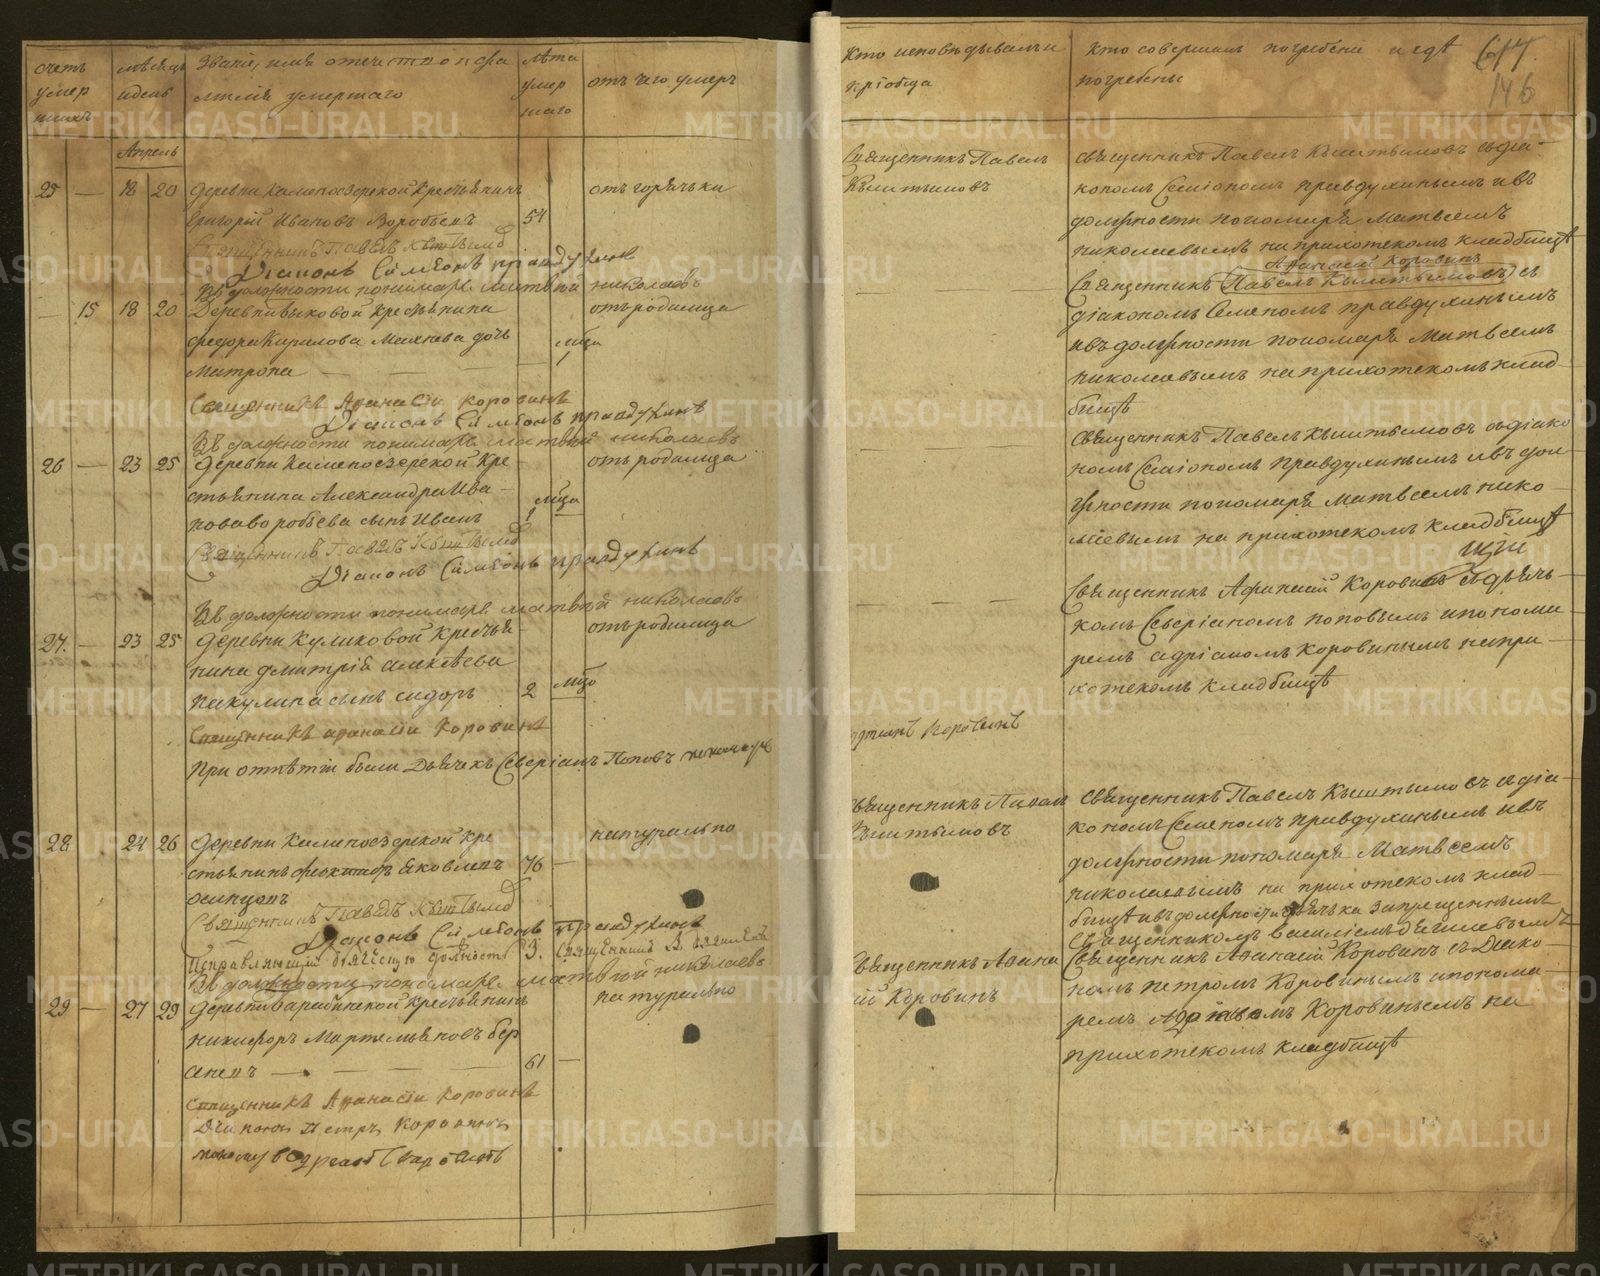 счетъ умер шихъ
мѣсяцъ и день
званіе, имя отечество и фа милія умершаго
лѣта умер шаго
отъ чего умеръ
Апрель
25 — 18 20 деревни Каменоозерской крестьянинъ
отъ горячьки
Григорій Ивановъ Воробьевъ 54
Священникъ Павелъ Кыштымовъ
Діаконъ Симеонъ Правдухинъ
Въ должности пономаря Матвѣй Николаевъ
— 15 18 20 Деревни Быковой крестьянина
отъ родимца
Федора Кирилова Махнева дочь мѣсца
Матрона — — — 1
Священникъ Афанасій Коровинъ
Діаконъ Симеонъ Правдухинъ
Въ должности пономаря Матвѣй Николаевъ
26 — 23 25 деревни Каменоозерской кре
отъ родимца
стьянина Александра Ива
мѣсца
нова Воробьева сынъ Иванъ 1
Священникъ Павелъ Кыштымовъ
Діаконъ Симеонъ Правдухинъ
Въ должности пономаря Матвѣй Николаевъ
27. — 23 25 деревни Куликовой крестья
отъ родимца
нина Дмитрія Алексѣева
Пикулина сынъ Сидоръ 2
Священникъ Афанасій Коровинъ
При отпѣтіи были Дьячекъ Северіанъ Поповъ пономарь
28 24 26 деревни Каменоозерской кре
натурально
стьянинъ Яковлевъ 76 —
Осинцовъ
Священникъ Павелъ Кыштымовъ
Діаконъ Симеонъ Правдухинъ
Исправляющій дьяческую должность З. Священникъ В.
Въ должности пономаря Матвѣй Николаевъ
29 — 27 29 деревни крестьянинъ
натурально
Никифоръ Мартемьяновъ Бер
сеневъ — — — 61 —
Священникъ Афанасій Коровинъ
Діаконъ Петръ Коровинъ
Кто исповѣдывалъ и пріобща
кто совершалъ погребеніе и гдѣ погребены
617.
146
Священникъ Павелъ
Кыштымовъ
Священникъ Павелъ Кыштымовъ съ діа-
кономъ Семіономъ Правдухинымъ и въ
должности пономаря Матвеемъ
Николаевымъ на приходскомъ кладбищѣ
Афанасій Коровинъ
Священникъ Павелъ Кыштымовъ съ
діакономъ Семеномъ Правдухинымъ
и въ должности пономаря Матвеемъ
Николаевымъ на приходскомъ клад-
бищѣ
Священникъ Павелъ Кыштымовъ съ діако
номъ Семіономъ Правдухинымъ и въ дол
жности пономаря Матвеемъ Нико
лаевымъ на приходскомъ кладбищѣ
Священникъ Афанасій Коровинъ съ дьяч-
комъ Северіаномъ Поповымъ и понома
ремъ Адріаномъ Коровинымъ на при-
ходскомъ кладбищѣ
Коровинъ
Священникъ Павелъ
Кыштымовъ
Священникъ Павелъ Кыштымовъ съ діа-
кономъ Семеномъ Правдухинымъ и въ
должности пономаря Матвеемъ
Николаевымъ на приходскомъ клад-
бищѣ и въ должности дьячька запрещеннымъ
Священникомъ Василіемъ
Священникъ Афана
ій Коровинъ
Священникъ Афанасій Коровинъ съ Діако-
номъ Петромъ Коровинымъ и понома
ремъ Адріаномъ Коровинымъ на
приходскомъ кладбищѣ
METRIKI.GASO-URAL.RU